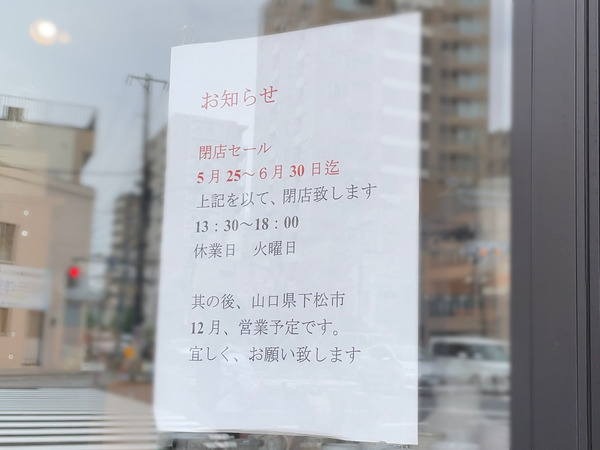 お知らせ
閉店セール
5月25〜6月30日迄
上記を以て、閉店致します
13：30〜18：00
休業日　火曜日
其の後、山口県下松市
12月、営業予定です。
宜しく、お願い致します